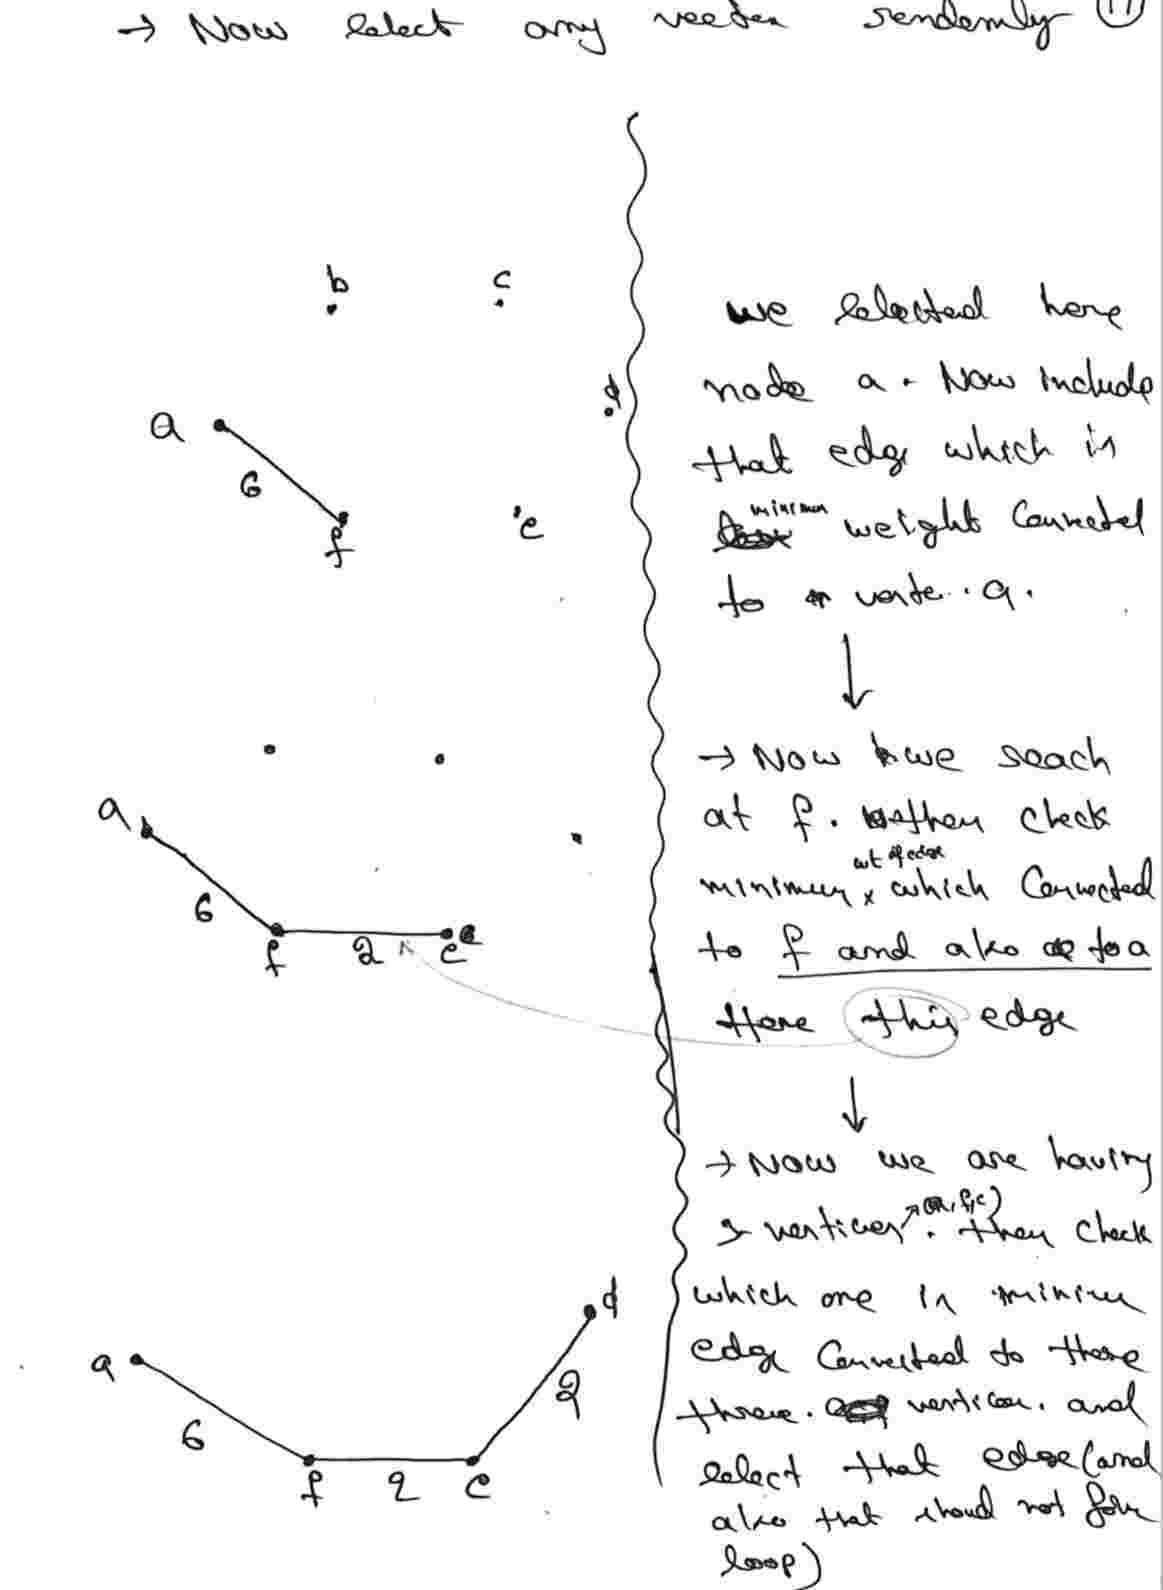 → Now select any vertex randomly 17
b c
d
a
6
f
e
we selected here
node a. Now include
that edge which is
minimum
weight connected
to verte. a.
→ Now we seach
at f. then check
wt of edge
minimum x which connected
to f and also to a
Here this edge
a
6
f 2 e
→ Now we are having
3 vertices (a, f, e). then check
which one is minimu
edge connected to those
three. vertices. and
select that edge (and
also that shoud not form
loop)
d
a
6
2
f 2 e